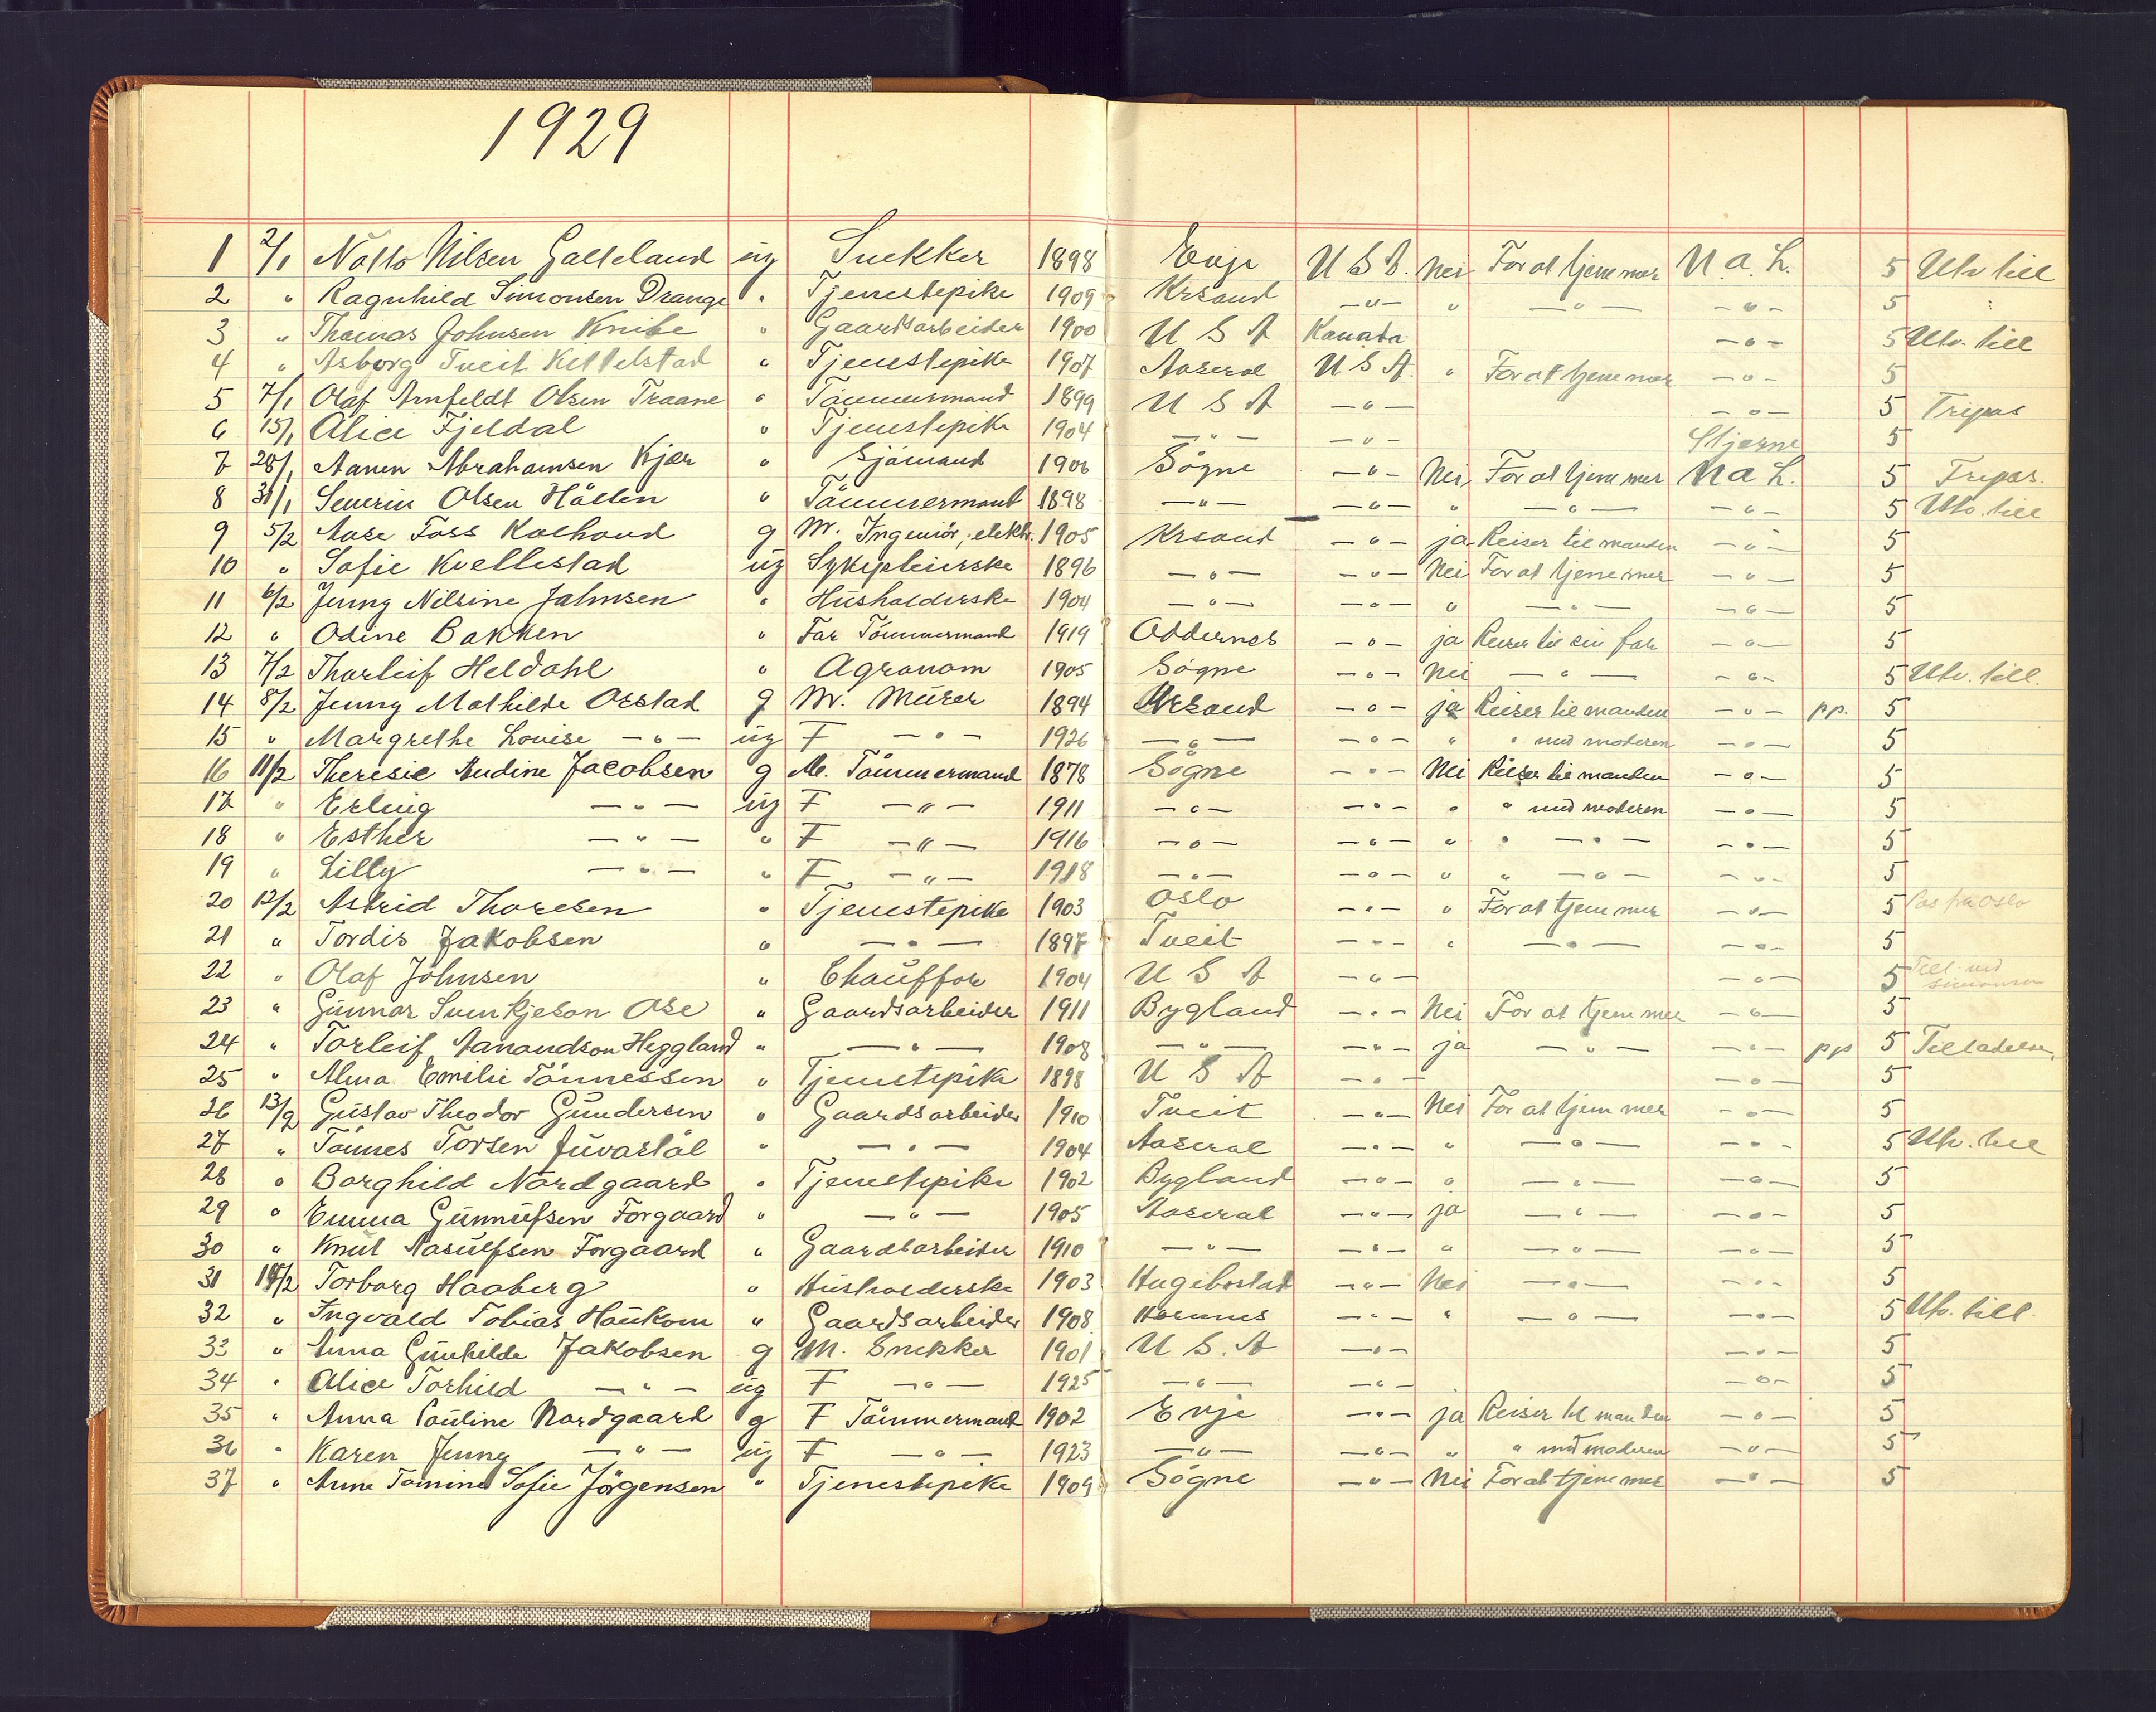 1929
1 2/1 Notto Nilsen Galteland ug Snekker 1898 Evje U S A. Nei For at tjene mer N. a. L. 5 Utv till
2 " Ragnhild Simonsen Drange " Tjenestepike 1909 Krsand —"— " —"— —"— 5 "
3 " Thomas Johnsen Knibe " Gaardsarbeider 1900 U S A Kanada —"— 5 Utv. till
4 " Asborg Tveit Kittelstad " Tjenestepike 1907 Aaseral U S A. " For at tjene mer —"— 5
5 7/1 Olaf Arnfeldt Olsen Traane " Tömmermand 1899 U S A —"— —"— 5 Tripas
6 15/1 Alice Fjeldal " Tjenestepike 1904 —"— —"— Stjerne 5
7 28/1 Aanen Abrahamsen Kjær " Sjömand 1906 Sögne —"— Nei For at tjene mer N a L. 5 Tripas.
8 31/1 Severin Olsen Höllen " Tömmermand 1898 —"— —"— " —"— —"— 5 Utv. till
9 5/2 Aase Foss Kolhond g M. Ingeniör, elektr. 1905 Krsand —"— ja Reiser til manden —"— 5
10 " Sofie Kvellestad ug Sykepleierske 1896 —"— —"— Nei For at tjene mer —"— 5
11 6/2 Jenny Nilsine Jahnsen " Husholderske 1904 —"— —"— " —"— —"— 5
12 " Odine Bakken " Far Tömmermand 1919 Oddernes —"— ja Reiser til sin far —"— 5
13 7/2 Thorleif Heldahl " Agronom 1905 Sögne —"— Nei —"— —"— 5 Utv. till.
14 8/2 Jenny Mathilde Orstad g M. Murer 1894 Krsand —"— ja Reiser til manden —"— pp. 5
15 " Margrethe Louise —"— ug F —"— 1926 —"— —"— " " med moderen —"— 5
16 11/2 Theresie Andine Jacobsen g M. Tömmermand 1878 Sögne —"— Nei Reiser til manden —"— 5
17 " Erling —"— ug F —"— 1911 —"— —"— " " med moderen —"— 5
18 " Esther —"— " F —"— 1916 —"— —"— " " —"— —"— 5
19 " Lilly —"— " F —"— 1918 —"— —"— " " —"— —"— 5
20 12/2 Astrid Thoresen " Tjenestepike 1903 Oslo —"— " For at tjene mer —"— 5 Pas fra Oslo
21 " Tordis Jakobsen " —"— 1897 Tveit —"— " —"— —"— 5
22 " Olaf Johnsen " Chauffør 1904 U S A —"— —"— 5 Till ved Simonsen
23 " Gunnar Sveinkjeson Ose " Gaardsarbeider 1911 Bygland —"— Nei For at tjene mer —"— 5
24 " Torleif Aanondson Heggland " —"— 1908 —"— —"— ja —"— —"— pp 5 Tilladelse
25 " Alma Emilie Tönnessen " Tjenestepike 1898 U S A —"— —"— 5
26 13/2 Gustav Theodor Gundersen " Gaardsarbeider 1910 Tveit —"— Nei For at tjene mer —"— 5
27 " Tönnes Torsen Juvastöl " —"— 1904 Aaseral —"— " —"— —"— 5 Utv. till
28 " Borghild Nordgaard " Tjenestepike 1902 Bygland —"— " —"— —"— 5
29 " Emma Gunnulfsen Forgaard " —"— 1905 Aaseral —"— ja —"— —"— 5
30 " Knut Aasulfsen Forgaard " Gaardsarbeider 1910 —"— —"— " —"— —"— 5
31 14/2 Torborg Haaberg " Husholderske 1903 Hægebostad —"— Nei —"— —"— 5
32 " Ingvald Tobias Haukom " Gaardsarbeider 1908 Hornnes —"— " —"— —"— 5 Utv. till.
33 " Anna Gunhilde Jakobsen g M. Snekker 1901 U S. A —"— —"— 5
34 " Alice Torhild —"— ug F —"— 1925 —"— —"— —"— 5
35 " Anna Pauline Nordgaard g F Tömmermand 1902 Evje —"— ja Reiser til manden —"— 5
36 " Karen Jenny —"— ug F —"— 1923 —"— —"— " " med moderen —"— 5
37 " Anne Tomine Sofie Jörgensen " Tjenestepike 1909 Sögne —"— Nei For at tjene mer —"— 5